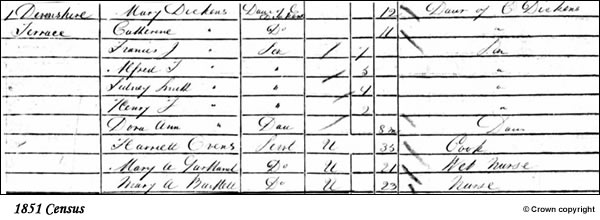 1 Devonshire Mary Dickens Daur of C Dickens 12 Daur of C Dickens
Terrace Catherine " Do 11 "
Francis J " Son 7 Son
Alfred T " " 5 "
Sidney Smith " " 4 "
Henry F " " 2 "
Dora Ann " Dau 8 m Daur
Harriett Evens Servt U 35 Cook
Mary A Do U 21 Wet Nurse
Mary A Bartlett Do U 23 Nurse
1851 Census © Crown copyright